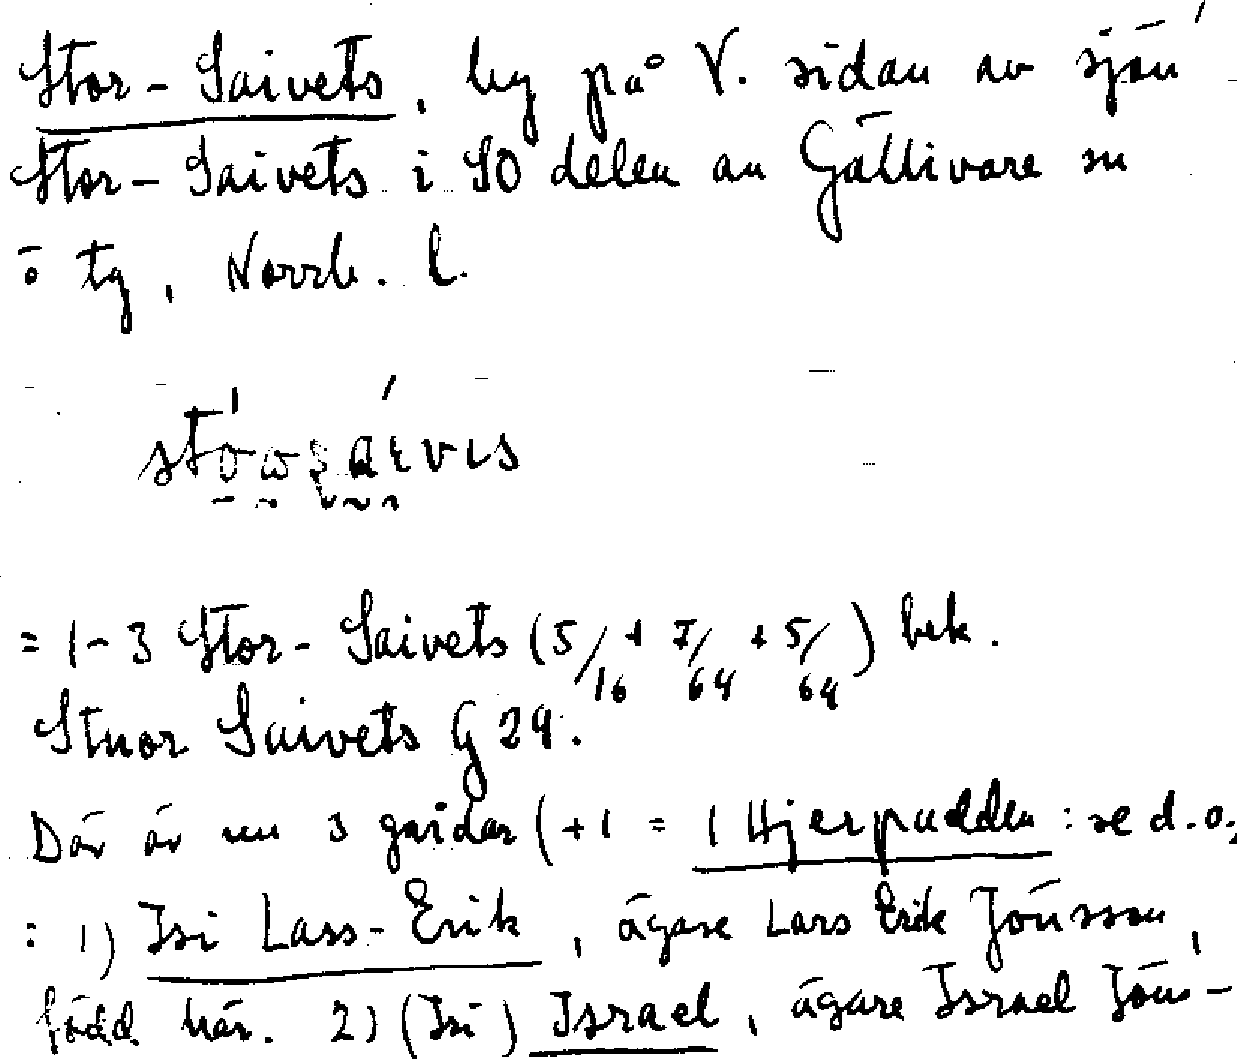 Stor-Saivets, by på V. sidan av sjön
Stor-Saivets i SO delen av Gällivare sn
o tg, Norrb. l.
= 1-3 Stor-Saivets (5/16 + 7/64 + 5/64) bek.
Stuor Saivets G 24.
Där är nu 3 gårdar (+1 = 1 Hjerpudden: se d.o.
: 1) Isi Lars-Erik, ägare Lars Erik Jönsson,
född här. 2) (Isi) Israel, ägare Israel Jöns-